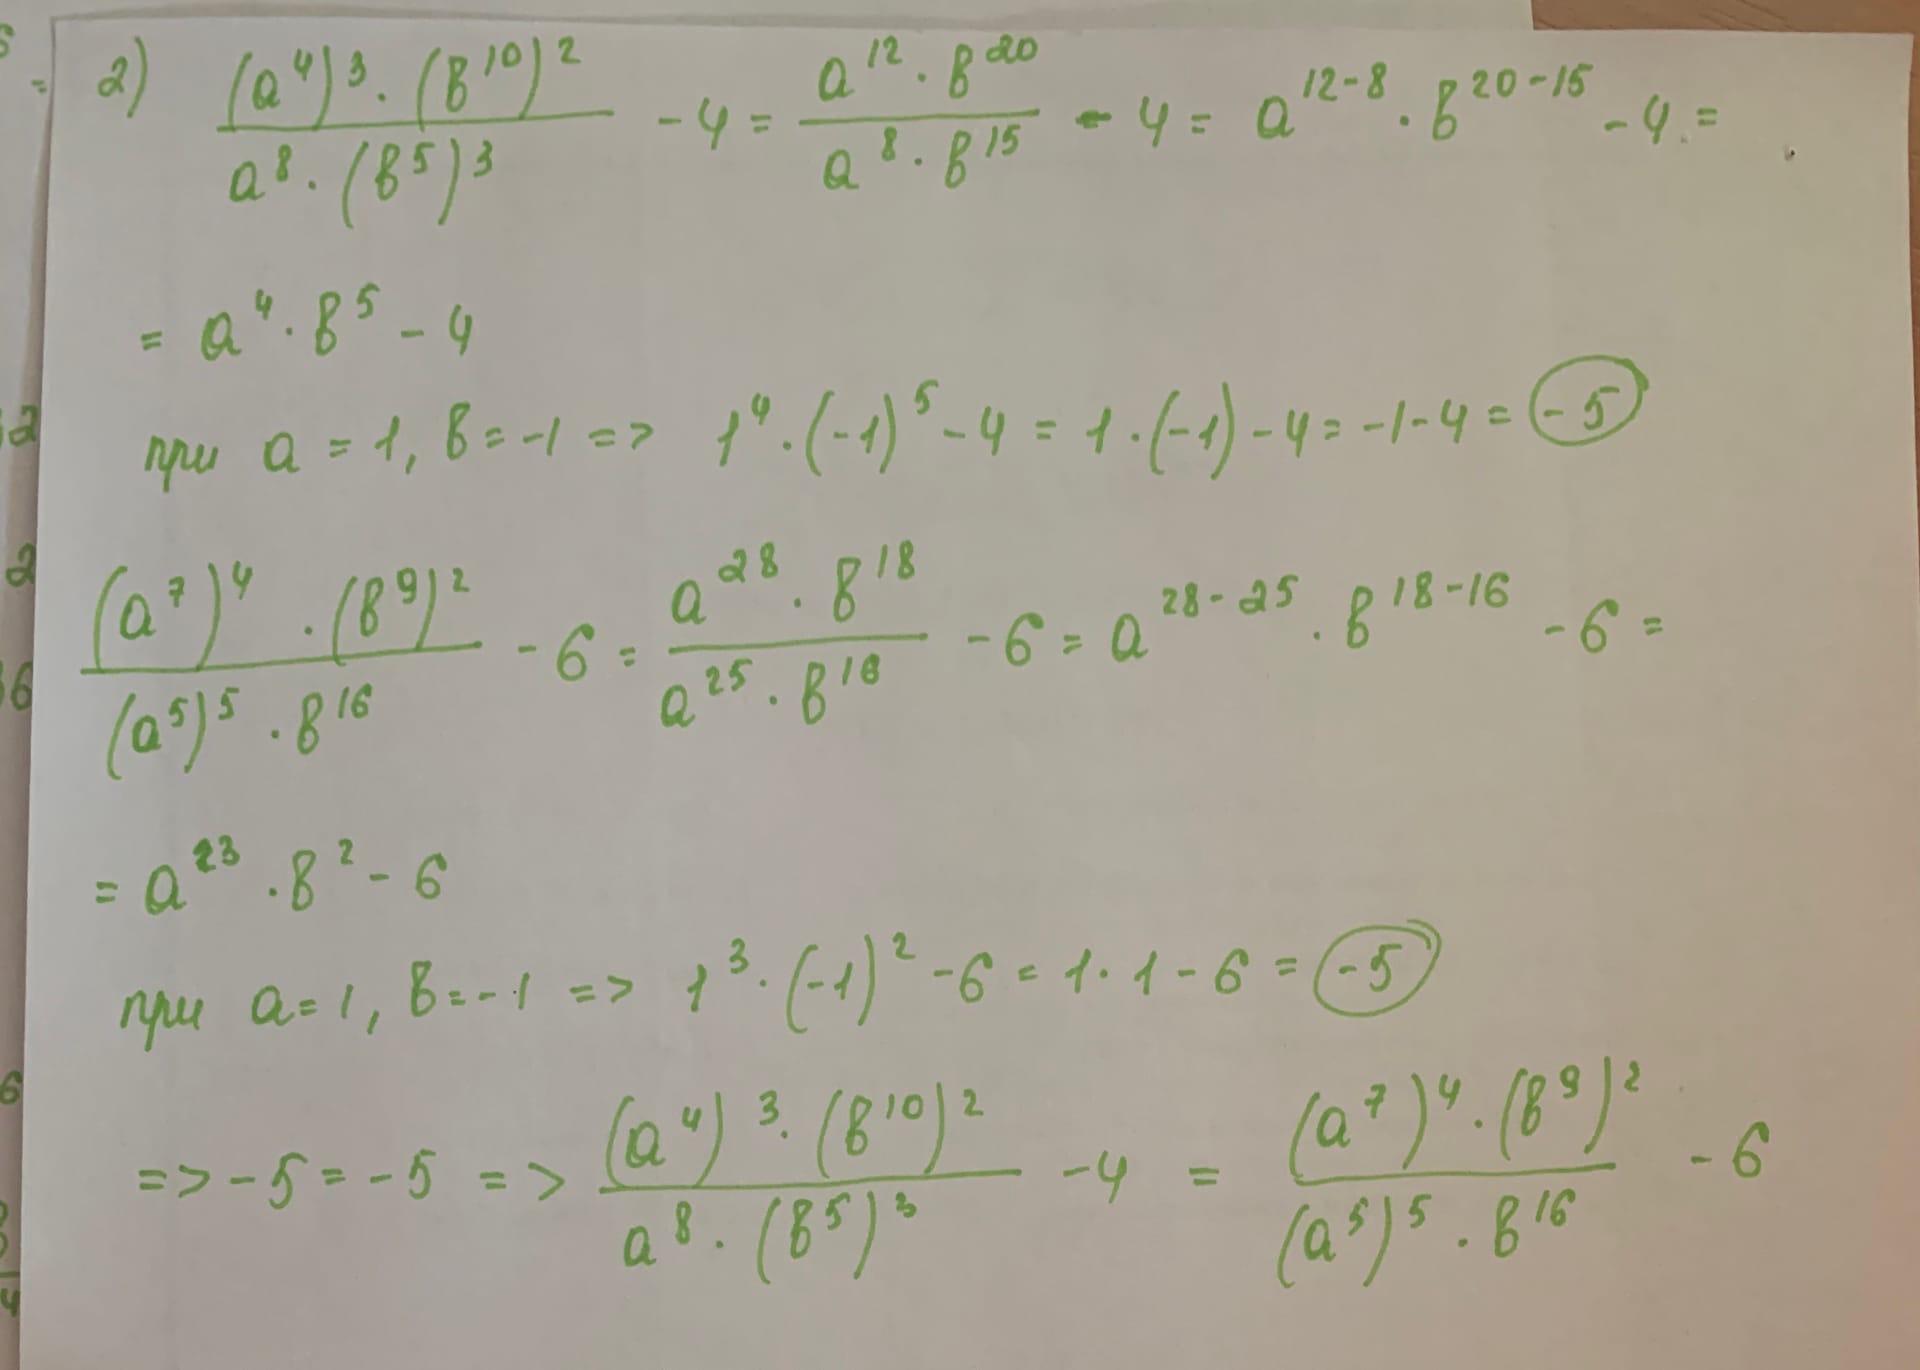 2) (a⁴)³ · (в¹⁰)² / a⁸ · (в⁵)³ - 4 = a¹² · в²⁰ / a⁸ · в¹⁵ - 4 = a¹²⁻⁸ · в²⁰⁻¹⁵ - 4 =
= a⁴ · в⁵ - 4
при a = 1, в = -1 => 1⁴ · (-1)⁵ - 4 = 1 · (-1) - 4 = -1 - 4 = -5
(a⁷)⁴ · (в⁹)² / (a⁵)⁵ · в¹⁶ - 6 = a²⁸ · в¹⁸ / a²⁵ · в¹⁶ - 6 = a²⁸⁻²⁵ · в¹⁸⁻¹⁶ - 6 =
= a²³ · в² - 6
при a = 1, в = -1 => 1³ · (-1)² - 6 = 1 · 1 - 6 = -5
=> -5 = -5 => (a⁴)³ · (в¹⁰)² / a⁸ · (в⁵)³ - 4 = (a⁷)⁴ · (в⁹)² / (a⁵)⁵ · в¹⁶ - 6